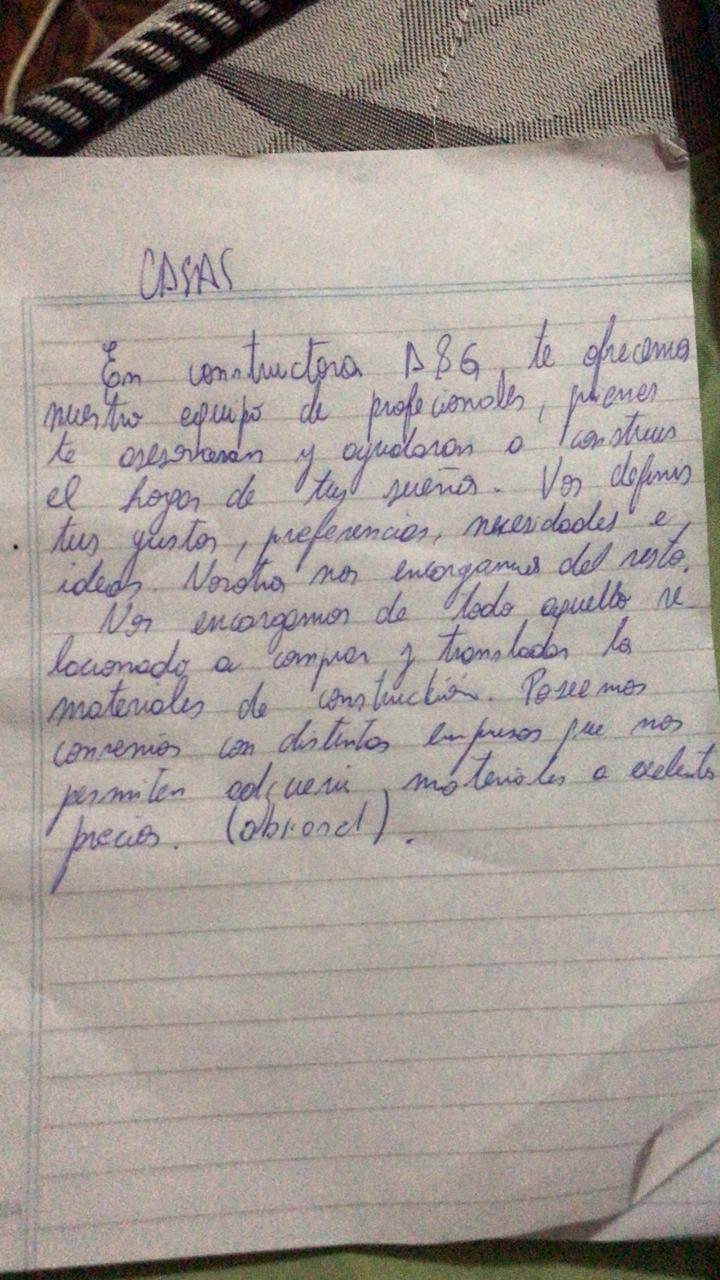 CASAS
En constructora D&G, te ofrecemos
nuestro equipo de profecionales, quienes
te asesoraran y ayudaran a construir
el hogar de tus sueños. Vos definis
tus gustos, preferencias, necesidades e
ideas. Nosotros nos encargamos del resto.
Nos encargamos de todo aquello re-
lacionado a comprar y transladar los
materiales de construcción. Poseemos
convenios con distintas empresas que nos
permiten adquerir materiales a exelentes
precios.